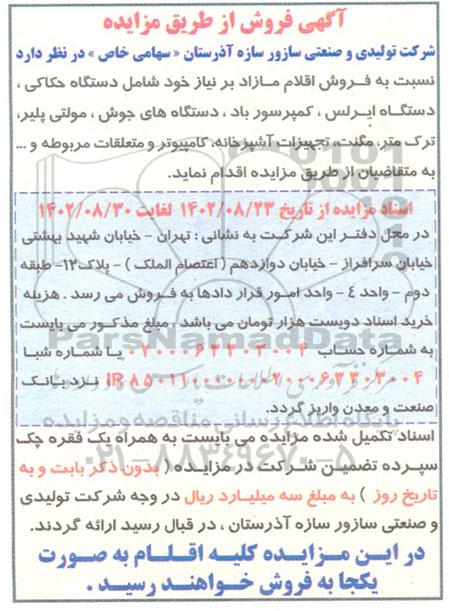 آگهی فروش از طریق مزایده
شرکت تولیدی و صنعتی سازور سازه آذرستان « سهامی خاص » در نظر دارد
نسبت به فروش اقلام مازاد بر نیاز خود شامل دستگاه حکاکی ،
دستگاه ایرلس ، کمپرسور باد ، دستگاه های جوش ، مولتی پلیر،
ترک متر، مگنت، تجهیزات آشپزخانه، کامپیوتر و متعلقات مربوطه و ...
به متقاضیان از طریق مزایده اقدام نماید.
اسناد مزایده از تاریخ ۱۴۰۲/۰۸/۲۳ لغایت ۱۴۰۲/۰۸/۳۰
در محل دفتر این شرکت به نشانی : تهران - خیابان شهید بهشتی
خیابان سرافراز - خیابان دوازدهم ( اعتصام الملک ) - پلاک ۱۲- طبقه
دوم - واحد ٤ - واحد امور قرار دادها به فروش می رسد . هزینه
خرید اسناد دویست هزار تومان می باشد ، مبلغ مذکور می بایست
به شماره حساب ۰۲۰۰۰۶۳۳۰۳۰۰۴ یا شماره شبا
نزد بانک
صنعت و معدن واریز گردد.
ParsNamadData
پایگاه اطلاع رسانی مناقصه و مزایده
۰۲۱-۸۸۳۴۹۶۷۰-۵
اسناد تکمیل شده مزایده می بایست به همراه یک فقره چک
سپرده تضمین شرکت در مزایده ( بدون ذکر بابت و به
تاریخ روز ) به مبلغ سه میلیارد ریال در وجه شرکت تولیدی
و صنعتی سازور سازه آذرستان ، در قبال رسید ارائه گردند.
در این مزایده کلیه اقلام به صورت
یکجا به فروش خواهند رسید .